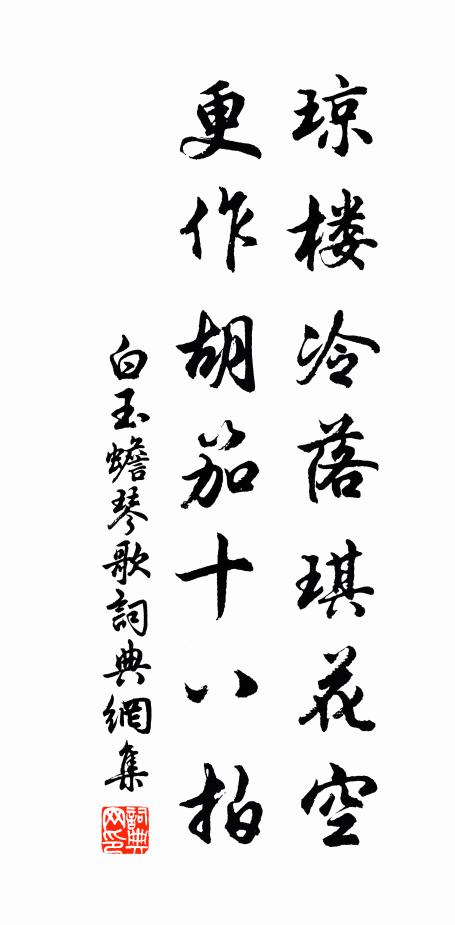 琼楼冷落琪花空
更作胡笳十八拍
白玉蟾琴歌詞典網集
詞典网印